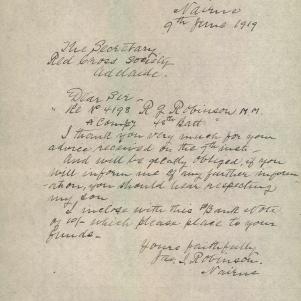 Nairne
9th June 1919
The Secretary
Red Cross Society
Adelaide.
Dear Sir-
"Re No 4198 R J Robinson M.M.
A Compy 48th Batt "
I thank you very much for your
advice received on the 7th inst-
And will be greatly obliged, if you
will inform me of any further inform
ation, you should hear respecting
my son
I inclose with this Bank Note
of 10/- which please place to your
funds-
Yours faithfully
J. Robinson.
Nairne